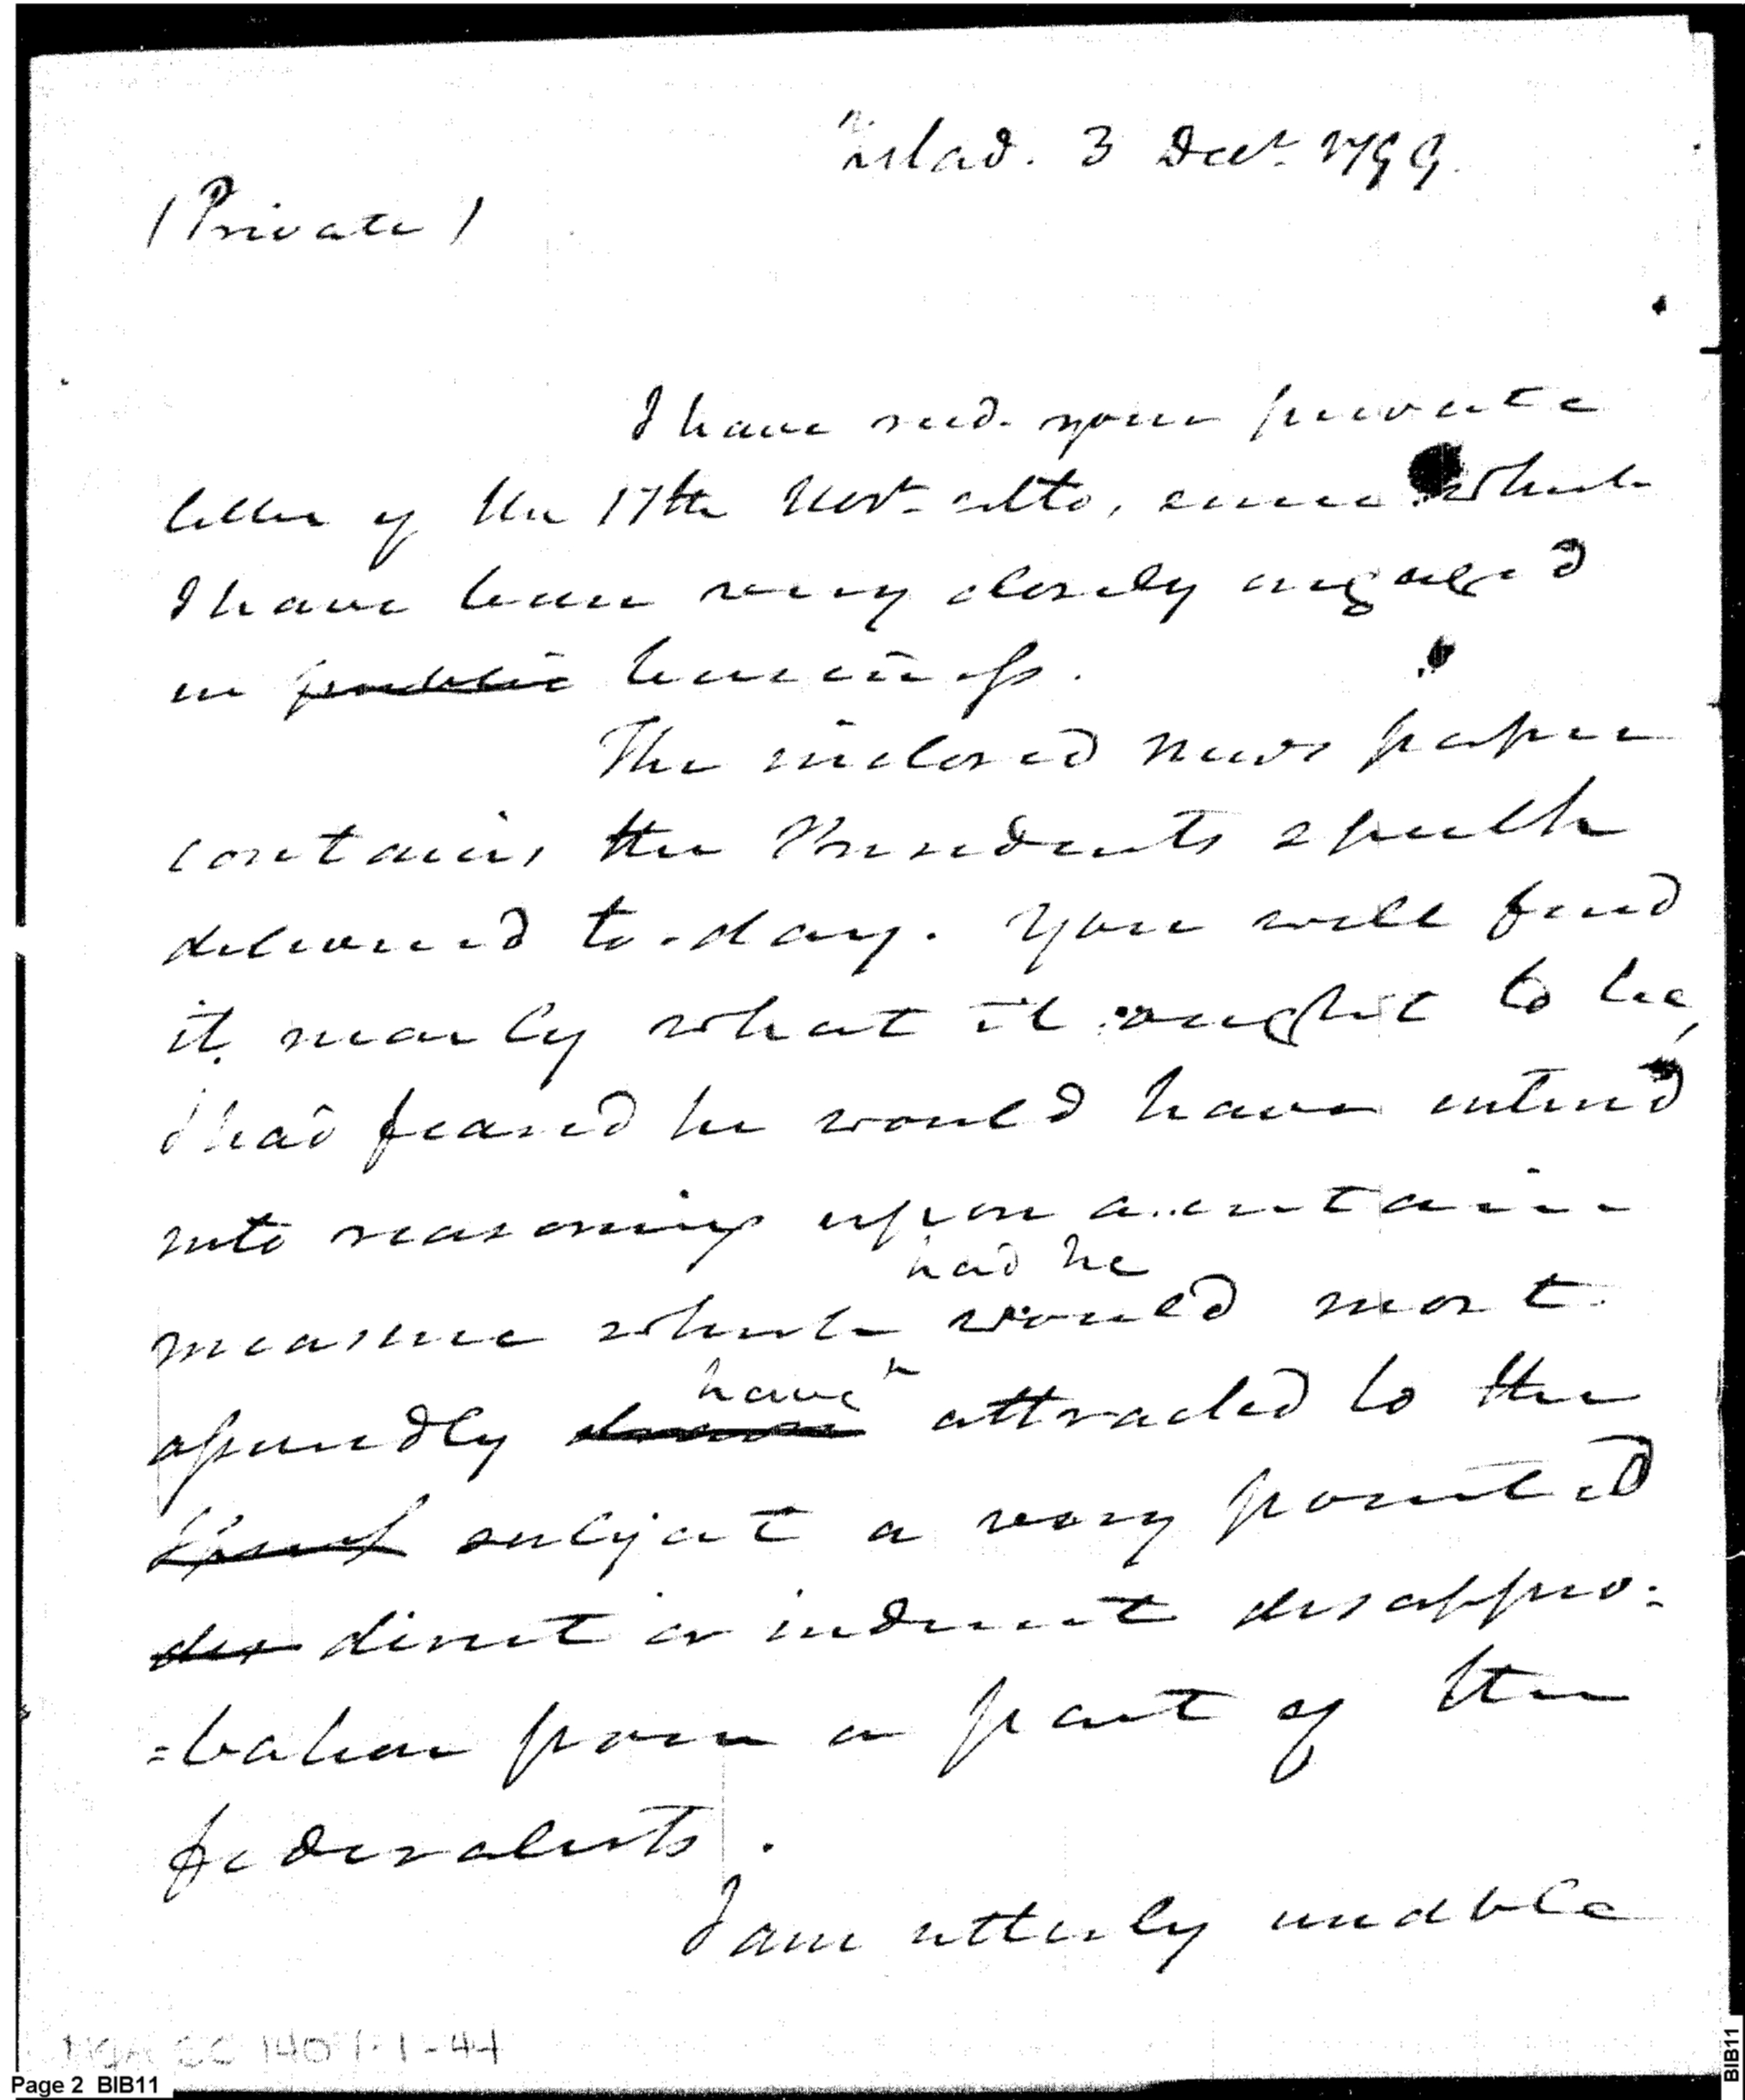 Philad. 3 Decr. 1799.
(Private)
I have recd. your private
letter of the 17th Novr. ulto, since which
I have been very closely engaged
in public business.
The inclosed news paper
contains the Presidents speech
delivered to-day. You will find
it nearly what it ought to be,
I had feared he would have entered
into reasonings upon a certain
had he
measure which would most
have
assuredly attracted to the
subject a very pointed
des direct or indirect disappro:
=bation from a part of the
federalists.
I am utterly unable
SC 1407-1-44
Page 2 BIB11
BIB11